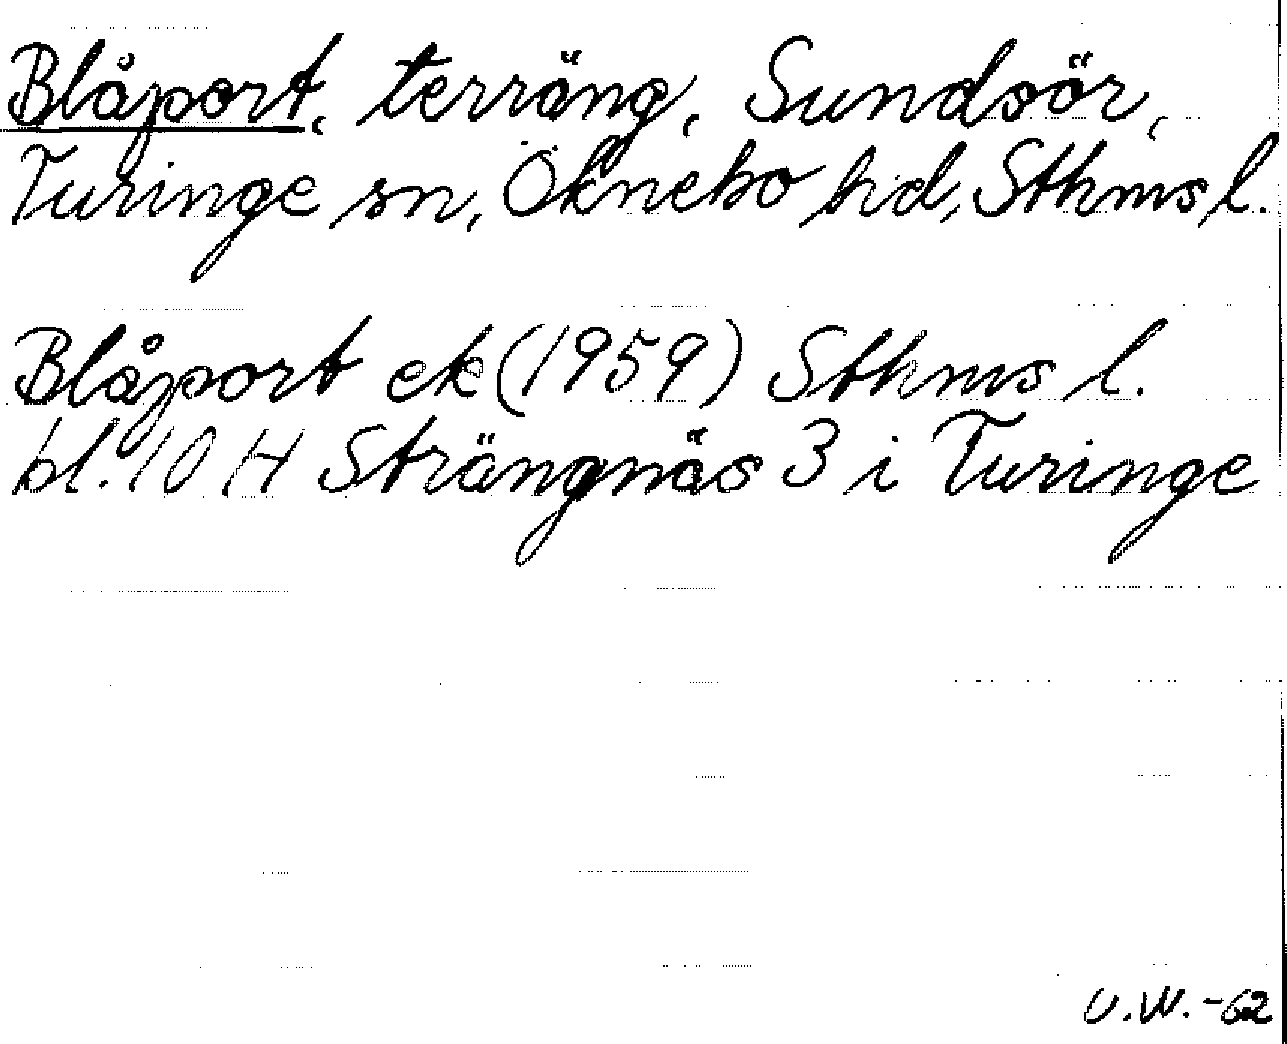 Blåport, terräng, Sundsör,
Turinge sn, Öknebo hd, Sthms l.
Blåport ek (1959) Sthms l.
bl. 10 H Strängnäs 3 i Turinge
U.W. -62